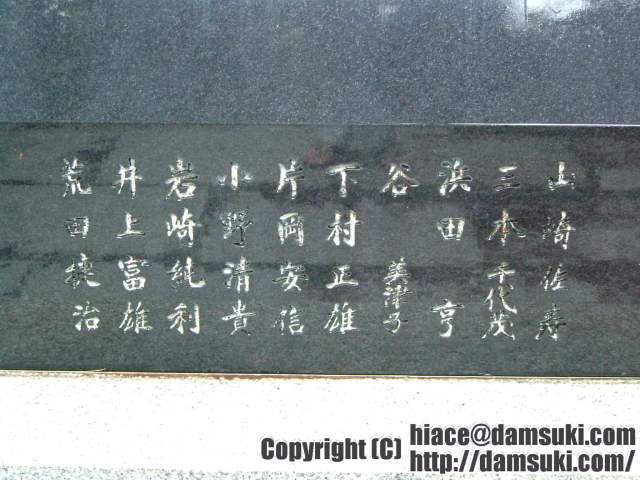 山崎佐寿
三本千代茂
浜田亨
谷美津子
下村正雄
片岡安信
小野清貴
岩崎純利
井上富雄
荒田 治
Copyright (C) hiace@damsuki.com
http://damsuki.com/